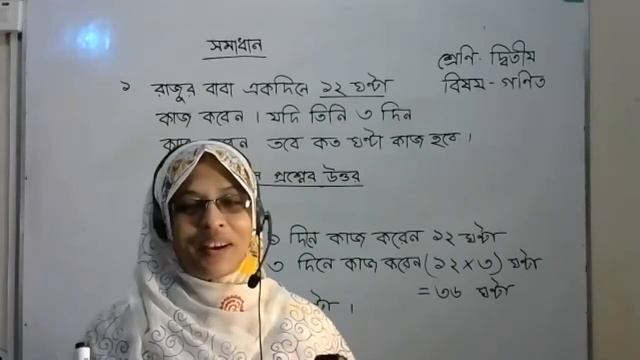 সমাধান
শ্রেণি - দ্বিতীয়
বিষয় - গণিত
১ রাজুর বাবা একদিনে ১২ ঘন্টা
কাজ করেন । যদি তিনি ৩ দিন
তবে কত ঘন্টা কাজ হবে ।
প্রশ্নের উত্তর
১ দিনে কাজ করেন ১২ ঘন্টা
৩ দিনে কাজ করেন (১২ × ৩) ঘন্টা
= ৩৬ ঘন্টা